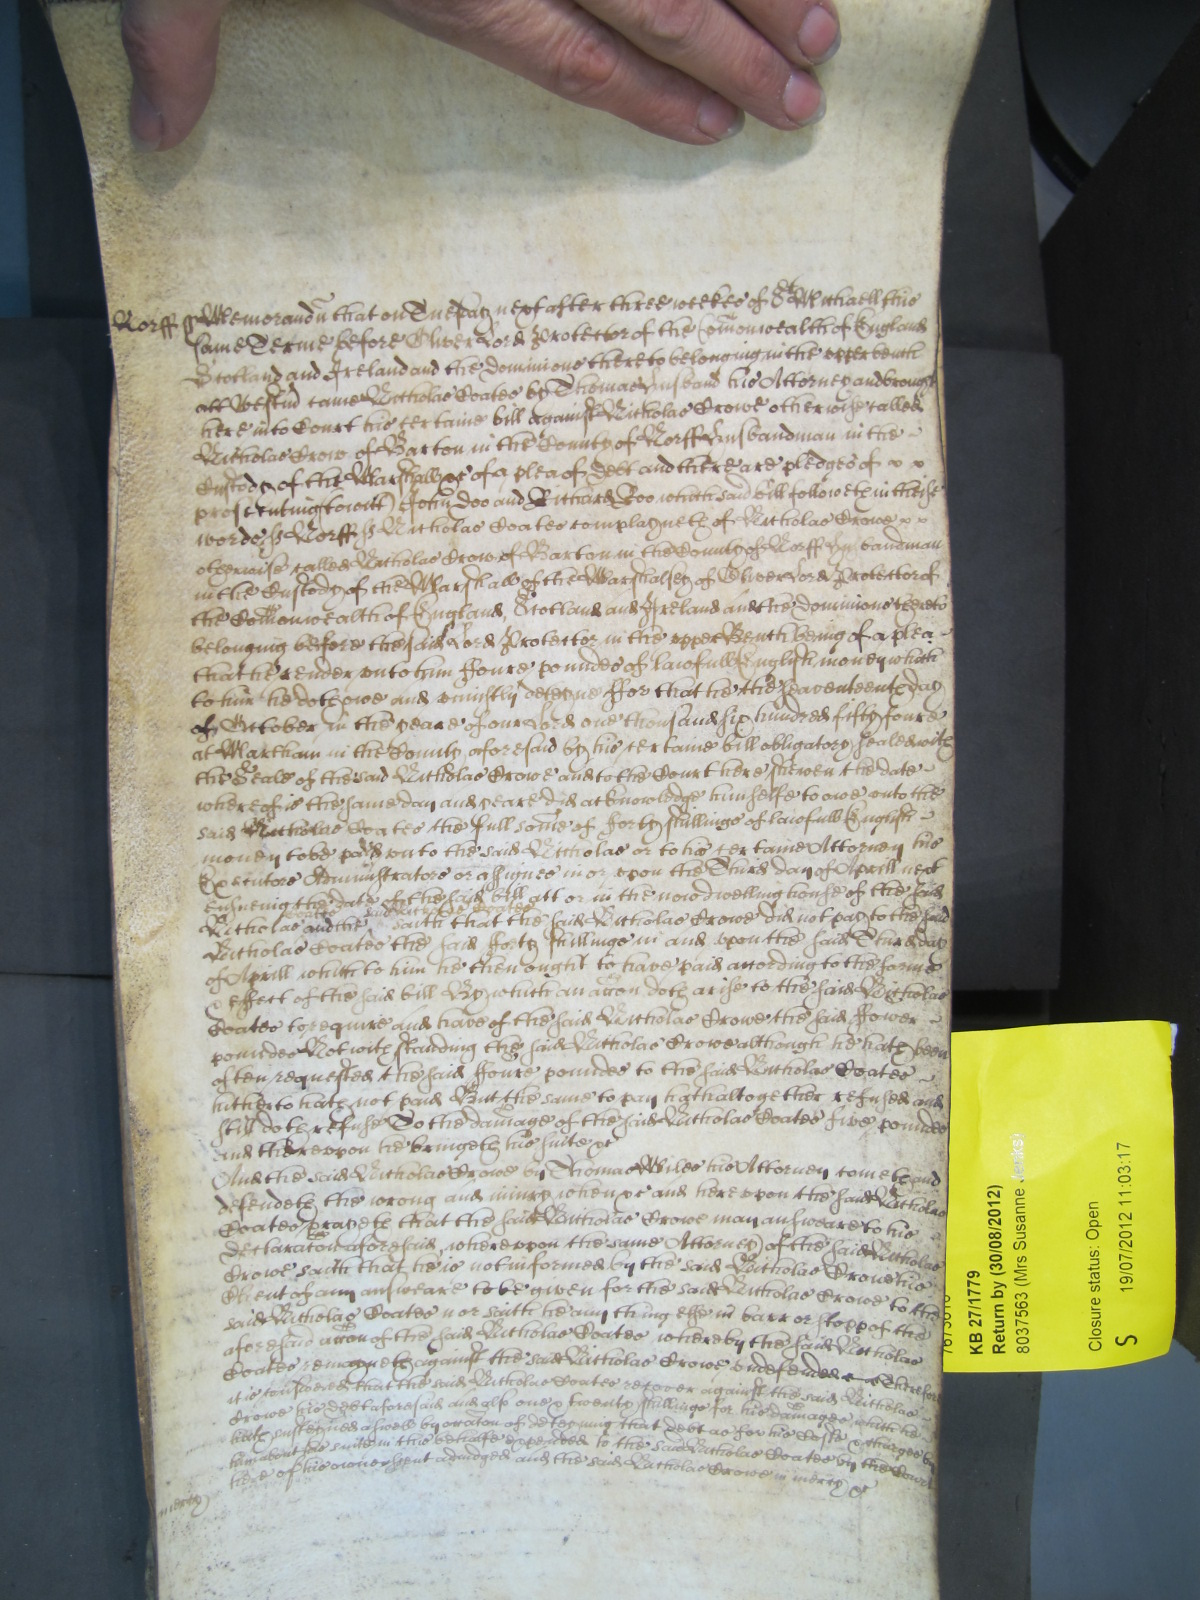 Norff ss Memorandu that on Tuesday next after three weekes of St Michaell this
same Terme before Oliver Lord Protector of the Comonwealth of England
Scotland and Ireland and the dominions thereto belonging in the upper bench
att Westm came Nicholas Coates by Thomas Husband his Attorney and brought
here into Court his certaine bill against Nicholas Crowe otherwise called
Nicholas Crow of Barton in the County of Norff husbandman in the
Custody of the Marshall &c of a plea of debt and there are pledges of x x
prosecuting (towitt) John Doo and Richard Roo which said bill followeth in these
words ss Norff ss Nicholas Coates complayneth of Nicholas Crowe x x
otherwise called Nicholas Crow of Barton in the County of Norff husbandman
in the Custody of the Marshall of the Marshalsey of Oliver Lord Protector of
the Comonwealth of England, Scotland and Ireland and the dominions thereto
belonging before the said Lord Protector in the upper Bench being of a plea
that he render unto him ffoure poundes of lawfull English money which
to him he doth owe and uniustly deteyne ffor that he the seaventeenth day
of October in the yeare of our Lord one thousand six hundred fifty foure
at Marham in the County aforesaid by his certaine bill obligatory sealed with
the Seale of the said Nicholas Crowe and to the Court here shewen the date
whereof is the same day and yeare did acknowledge himselfe to owe unto the
said Nicholas Coates the full some of forty shillings of lawfull English
money to be paid unto the said Nicholas or to his certaine Attorney his
Executors Administrators or assignes in or upon the Third day of Aprill next
ensueing the date of the said bill att or in the now dwelling house of the said
Nicholas and the saith that the said Nicholas Crowe did not pay to the said
Nicholas Coates the said forty shillings in and upon the said Third day
of Aprill which to him he then ought to have paid according to the forme
& effect of the said bill By which an accon doth arise to the said Nicholas
Coates to require and have of the said Nicholas Crowe the said ffower
poundes Notwithstanding the said Nicholas Crowe although he hath been
often requested the said ffoure poundes to the said Nicholas Coates
hitherto hath not paid But the same to pay hath altogether refused and
still doth refuse To the damage of the said Nicholas Coates five poundes
and thereupon he bringeth this suite &c
And the said Nicholas Crowe by Thomas Wiles his Attorney cometh and
defendeth the wrong and iniury when &c and hereupon the said Nicholas
Coates prayeth that the said Nicholas Crowe may answeare to his
declaracon aforesaid, whereupon the same Attorney of the said Nicholas
Crowe saith that he is not informed by the said Nicholas Crowe his
Client of any answeare to be given for the said Nicholas Crowe to the
said Nicholas Coates nor saith he any thing else in barr or stopp of the
aforesaid accon of the said Nicholas Coates whereby the said Nicholas
Coates remayneth against the said Nicholas Crowe undefended Therefore
it is considered that the said Nicholas Coates recover against the said Nicholas
Crowe his debt aforesaid and also one & twenty shillings for his damages which he
hath susteyned aswell by occacon of deteyning that debt as for his Costs & charges by
him about his suite in this behalfe expended to the said Nicholas Coates by the Court
here of his owne assent adiudged and the said Nicholas Crowe in mercy &c
mercy
KB 27/1779
Return by (30/08/2012)
8037563 (Mrs Susanne
Closure status: Open
S 19/07/2012 11:03:17